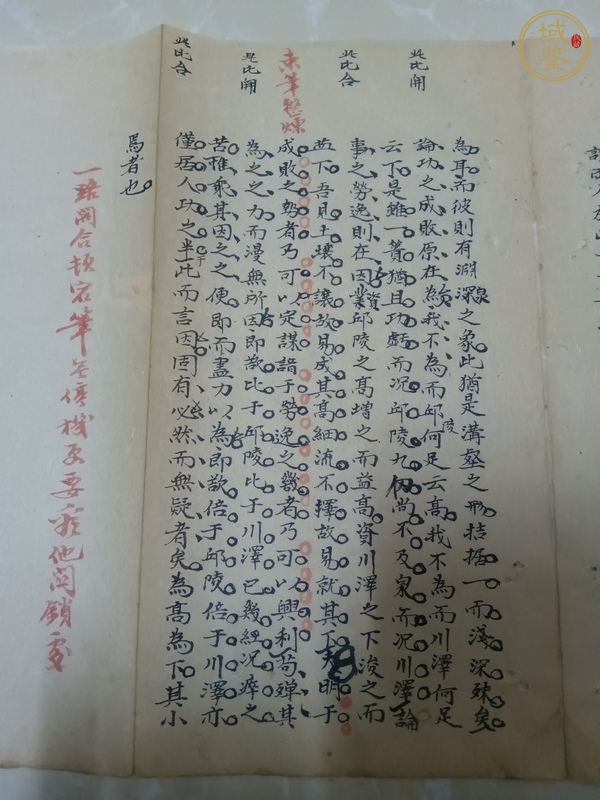 此比開
此比合
末筆整煉
此比開
此比合
為耳而彼則有淵深之象此猶是溝壑之形拮据一而淺深殊矣
論功之成敗原在為我不為而邱陵何足云高我不為而川澤何足
云下是雖一簣猶且功虧而况邱陵九仞尚不及泉而况川澤論
事之勞逸則在因業邱陵之高增之而益高資川澤之下浚之而
益下吾見土壤不讓故易成其高細流不擇故易就其下夫明于
成敗之勢者乃可以定謀諳于勞逸之幾者乃可以興利苟殫其
為之之力而漫無所因即哉比于邱陵比于川澤已幾經況瘁之
苦惟乘其因之之便即而盡力以為即欲倍于邱陵倍于川澤亦
僅居人功之半此而言因因有必然而無疑者矣為高為下其小
焉者也
一路開合頓宕筆無停機更要看他関鎖處
域鑒